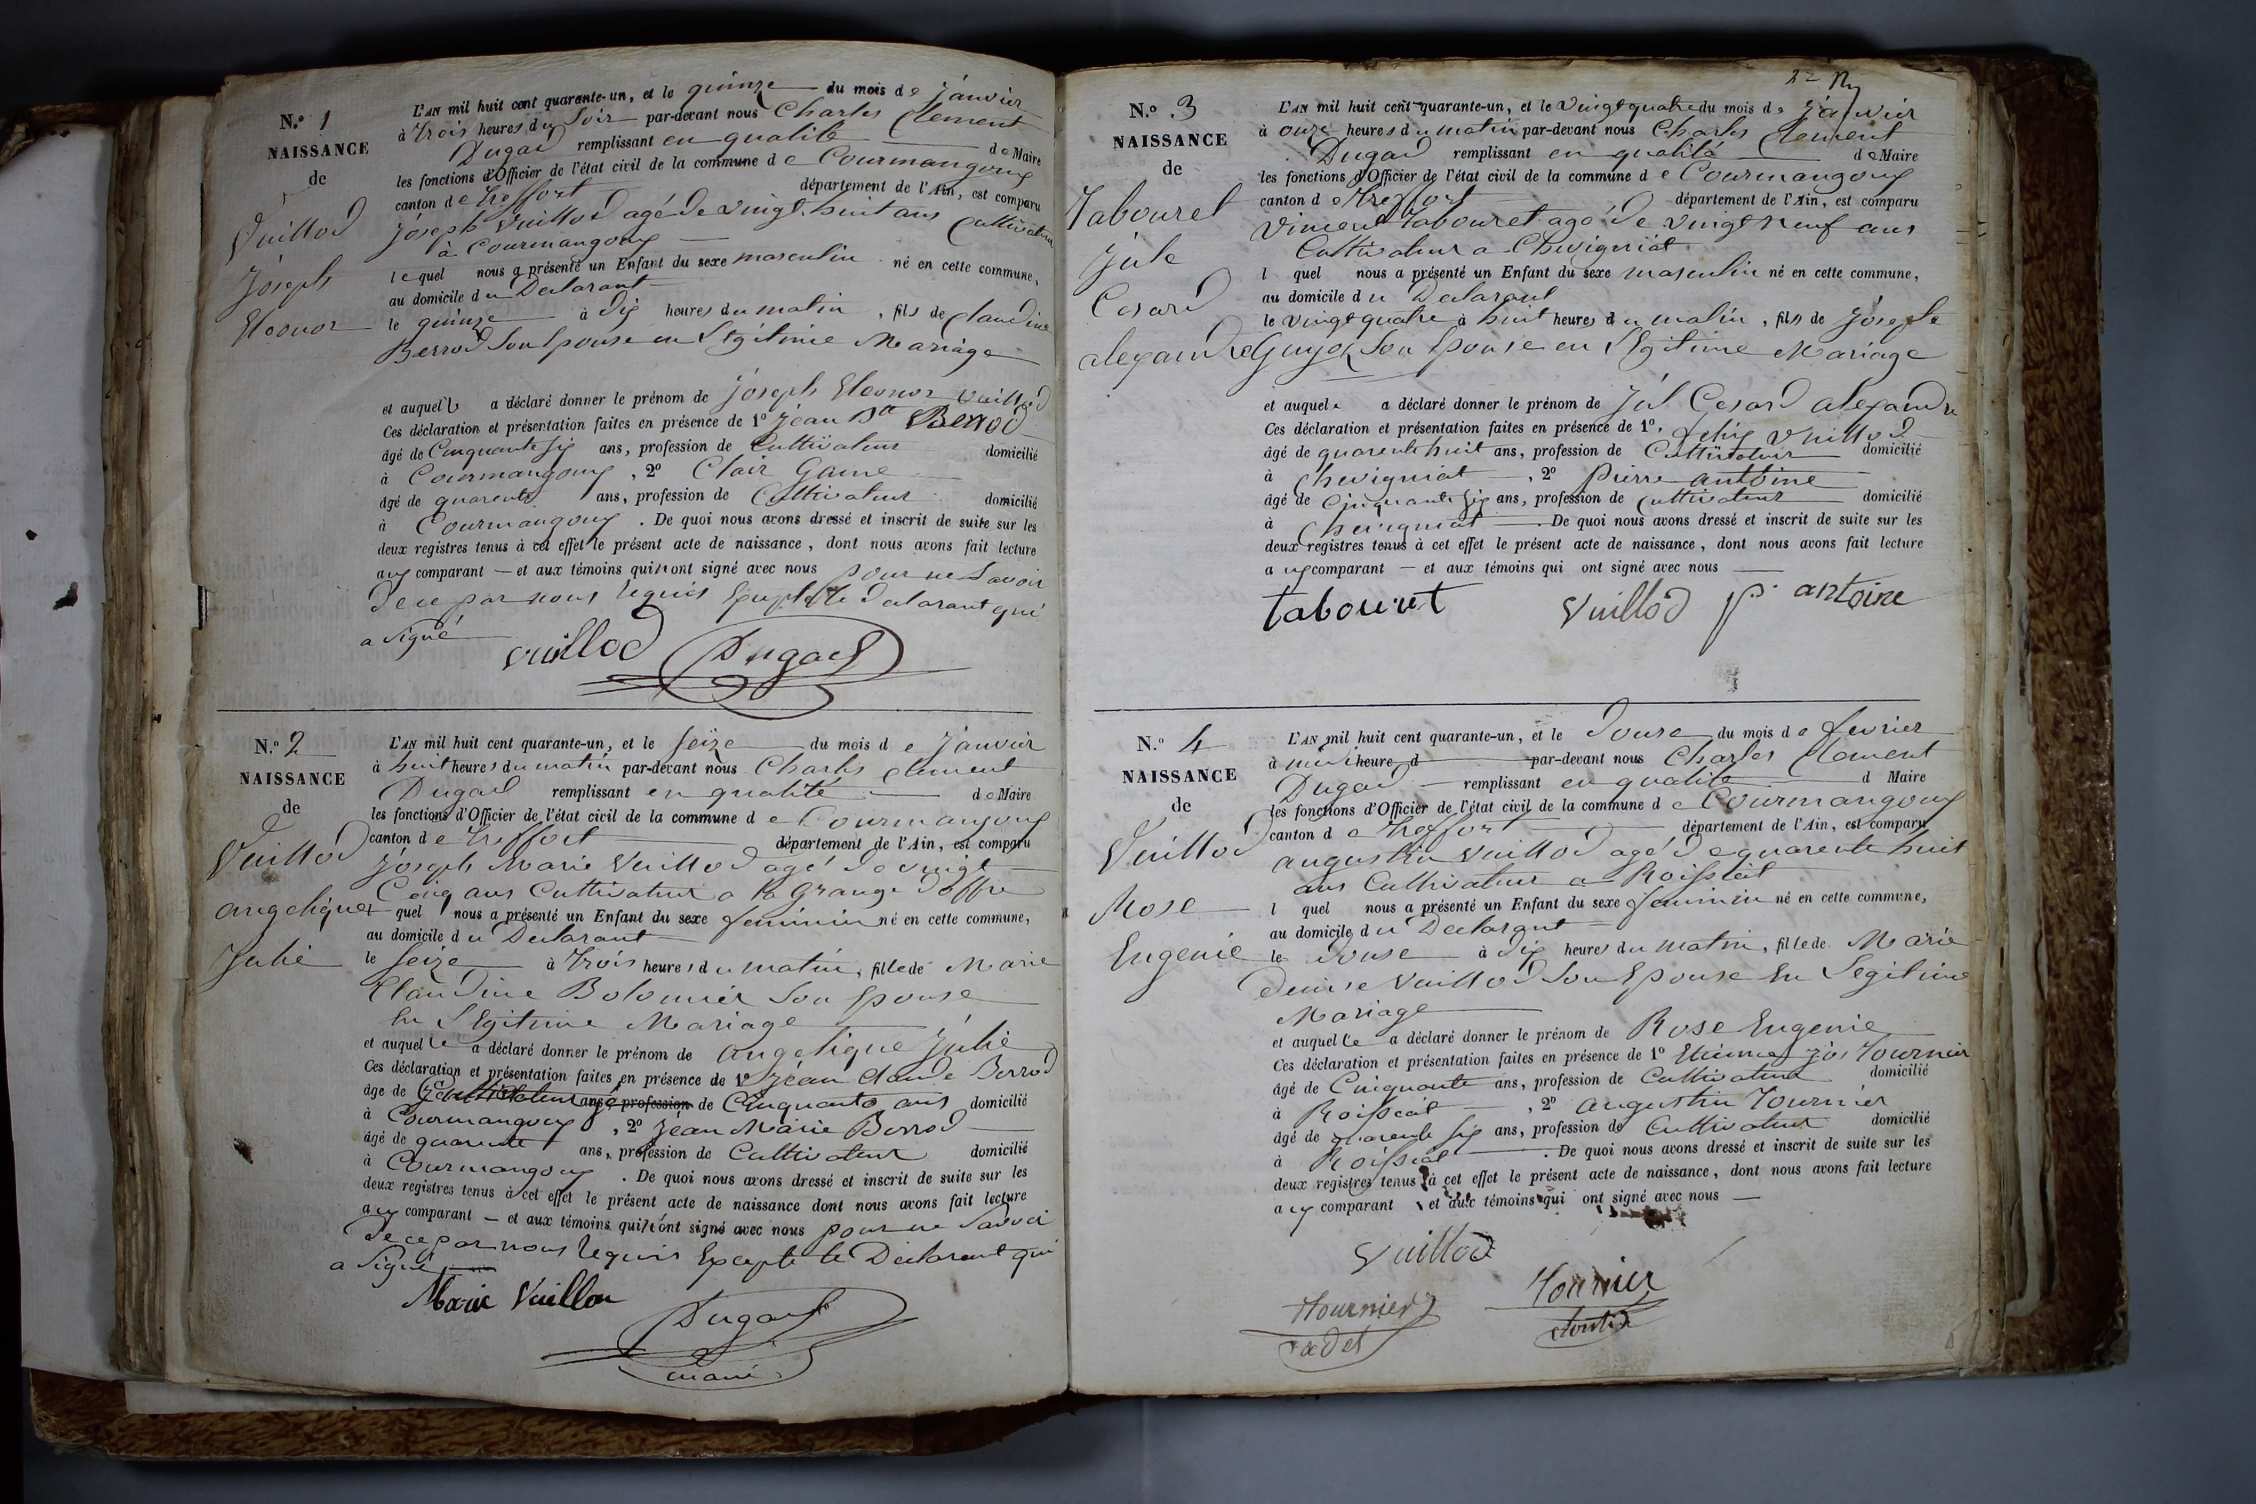 N.º 1
NAISSANCE
de
Vuillod
Joseph
Eleonor
L'AN mil huit cent quarante-un, et le quinze du mois de Janvier
à trois heures du soir par-devant nous Charles Clement
Dugad remplissant en qualité de Maire
les fonctions d'Officier de l'état civil de la commune de Courmangoux
canton de treffort département de l'Ain, est comparu
Joseph Vuillod agé de vingt huit ans Cultivateur
à Courmangoux
lequel nous a présenté un Enfant du sexe masculin né en cette commune,
au domicile du Declarant
le quinze à dix heures du matin, fils de Claudine
Berrod Son Epouse en Légitime Mariage
et auquel a déclaré donner le prénom de Joseph Eleonor Vuillod
Ces déclaration et présentation faites en présence de 1º Jean Bte Berrod
âgé de Cinquante six ans, profession de Cultivateur domicilié
à Courmangoux, 2º Clair Game
âgé de quarente ans, profession de Cultivateur domicilié
à Courmangoux. De quoi nous avons dressé et inscrit de suite sur les
deux registres tenus à cet effet le présent acte de naissance, dont nous avons fait lecture
aux comparant — et aux témoins qui n'ont signé avec nous pour ne Savoir
de ce par nous requis Excepté le Declarant qui
a Signé
Vuillod Dugad
N.º 2
NAISSANCE
de
Vuillod
angelique
Julie
L'AN mil huit cent quarante-un, et le seize du mois de Janvier
à huit heures du matin par-devant nous Charles Clement
Dugad remplissant en qualité de Maire
les fonctions d'Officier de l'état civil de la commune de Courmangoux
canton de treffort département de l'Ain, est comparu
Joseph Marie Vuillod agé de vingt
Cinq ans Cultivateur a la Grange Doffre
quel nous a présenté un Enfant du sexe feminin né en cette commune,
au domicile du Declarant
le seize à trois heures du matin, fille de Marie
Claudine Bolomier Son Epouse
En Légitime Mariage
et auquelle a déclaré donner le prénom de angelique Julie
Ces déclaration et présentation faites en présence de 1º Jean Claude Berrod
âgé de Cultivateur agé ans, profession de Cinquante ans domicilié
à Courmangoux, 2º Jean Marie Berrod
âgé de quarente ans, profession de Cultivateur domicilié
à Courmangoux. De quoi nous avons dressé et inscrit de suite sur les
deux registres tenus à cet effet le présent acte de naissance dont nous avons fait lecture
aux comparant — et aux témoins qui n'ont signé avec nous pour ne Savoir
de ce par nous requis Excepté le Declarant qui
a Signé
Marie Vuillou
Dugad
maire
N.º 3
NAISSANCE
de
Tabouret
Jule
Cesard
alexandre
L'AN mil huit cent quarante-un, et le vingt quatre du mois de Janvier
à onze heures du matin par-devant nous Charles Clement
Dugad remplissant en qualité de Maire
les fonctions d'Officier de l'état civil de la commune de Courmangoux
canton de treffort département de l'Ain, est comparu
Vincent Tabouret agé de vingt neuf ans
Cultivateur a Chevigniat
l quel nous a présenté un Enfant du sexe masculin né en cette commune,
au domicile du Declarant
le vingt quatre à huit heures du matin, fils de Josepte
Guyot Son Epouse en Légitime Mariage
et auquel a déclaré donner le prénom de Jul Cesard alexandre
Ces déclaration et présentation faites en présence de 1º, felix Vuillod
âgé de quarente huit ans, profession de Cultivateur domicilié
à Chevigniat, 2º Pierre antoine
âgé de Cinquante six ans, profession de Cultivateur domicilié
à Chevigniat. De quoi nous avons dressé et inscrit de suite sur les
deux registres tenus à cet effet le présent acte de naissance, dont nous avons fait lecture
aux comparant — et aux témoins qui ont signé avec nous
tabouret Vuillod P. antoine
N.º 4
NAISSANCE
de
Vuillod
Rose
Eugenie
L'AN mil huit cent quarante-un, et le douse du mois de fevrier
à midi heure d par-devant nous Charles Clement
Dugad remplissant en qualité d Maire
les fonctions d'Officier de l'état civil de la commune de Courmangoux
canton de treffort département de l'Ain, est comparu
augustin Vuillod agé de quarente huit
ans Cultivateur a Roissiat
l quel nous a présenté un Enfant du sexe feminin né en cette commune,
au domicile du Declarant
le douse à dix heures du matin, fille de Marie
Denise Vuillod Son Epouse En Légitime
Mariage
et auquelle a déclaré donner le prénom de Rose Eugenie
Ces déclaration et présentation faites en présence de 1º Etienne Jos Tournier
âgé de Cinquante ans, profession de Cultivateur domicilié
à Roissiat, 2º augustin Tournier
âgé de quarente six ans, profession de Cultivateur domicilié
à Roissiat. De quoi nous avons dressé et inscrit de suite sur les
deux registres tenus à cet effet le présent acte de naissance, dont nous avons fait lecture
aux comparant et aux témoins qui ont signé avec nous —
Vuillod
Tournier Tournier
cadet